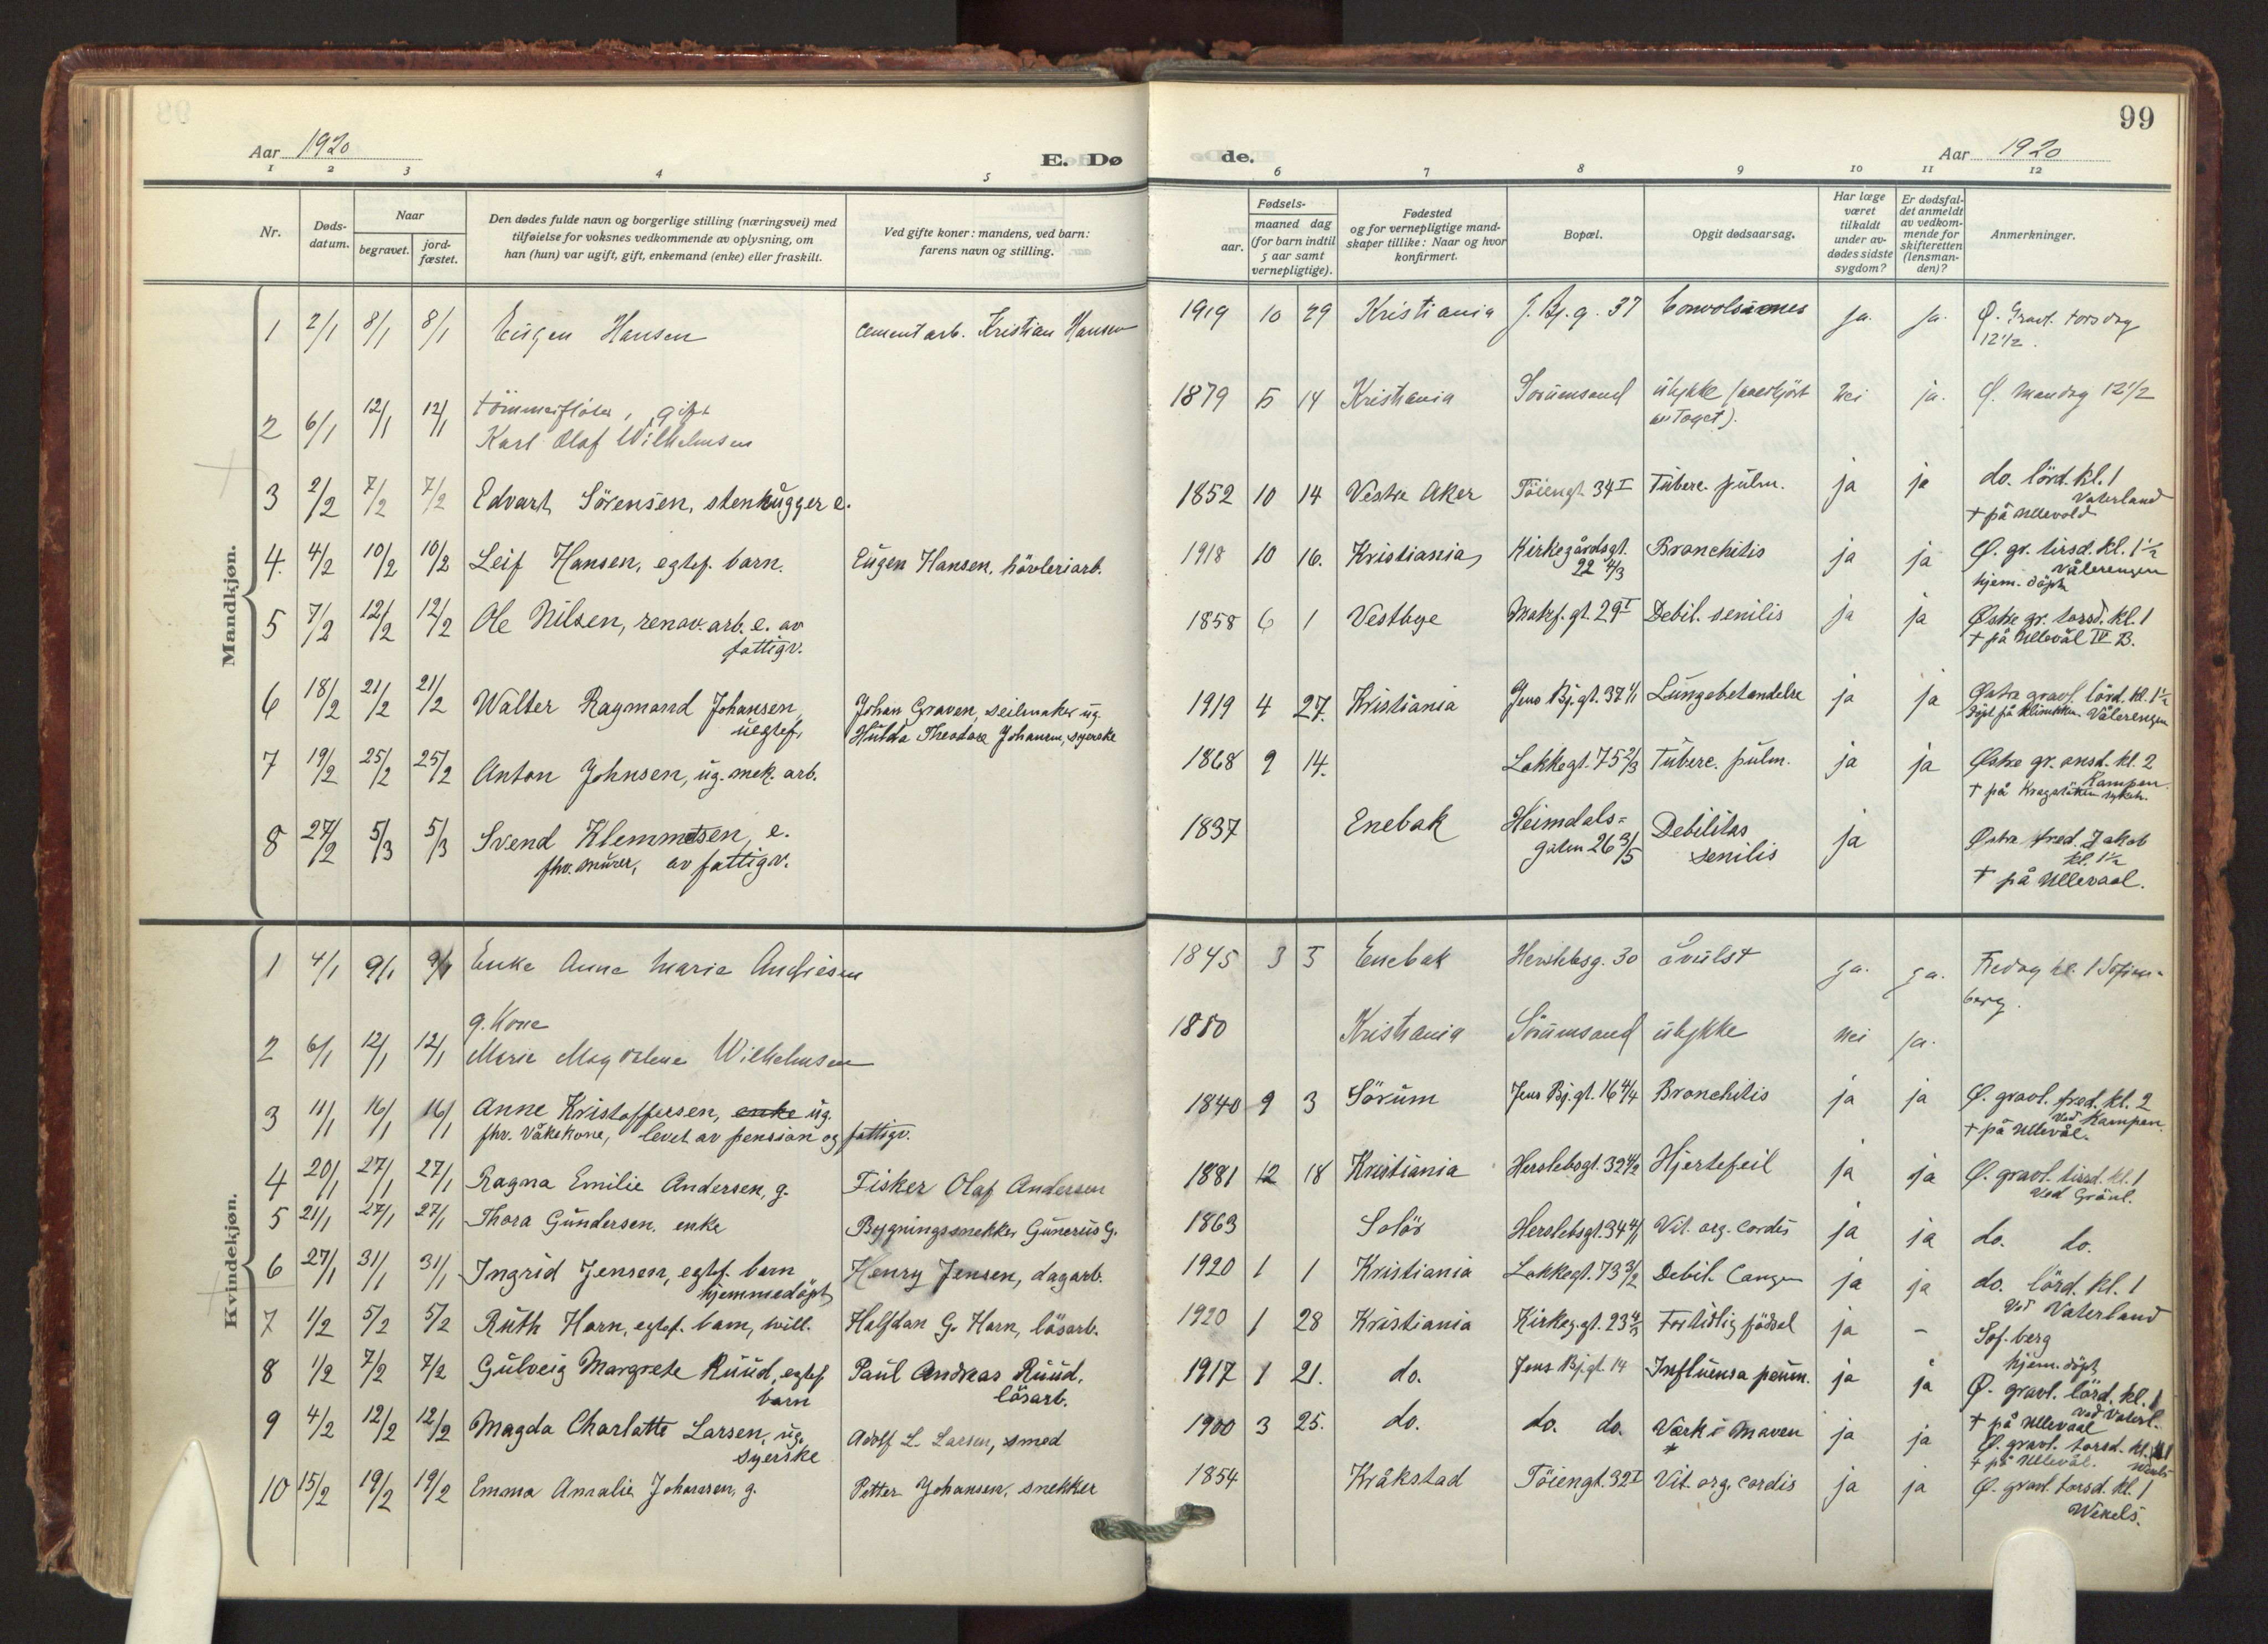 99
Aar 1920
E. Dø de.
Aar 1920
1 2 3 4 5 6 7 8 9 10 11 12
Nr.
Døds-
datum.
Naar
begravet.
jord-
fæstet.
Den dødes fulde navn og borgerlige stilling (næringsvei) med
tilføielse for voksnes vedkommende av oplysning, om
han (hun) var ugift, gift, enkemand (enke) eller fraskilt.
Ved gifte koner: mandens, ved barn:
farens navn og stilling.
Fødsels-
aar.
maaned dag
(for barn indtil
5 aar samt
vernepligtige).
Fødested
og for vernepligtige mand-
skaper tillike: Naar og hvor
konfirmert.
Bopæl.
Opgit dødsaarsag.
Har læge
været
tilkaldt
under av-
dødes sidste
sygdom?
Er dødsfal-
det anmeldt
av vedkom-
mende for
skifteretten
(lensman-
den)?
Anmerkninger.
Mandkjøn.
1 2/1 8/1 8/1 Eugen Hansen cementarb. Kristian Hansen 1919 10 29 Kristiania J. Bj. g. 37 Convolsiones ja. ja. Ø. Gravl. torsdag
12 1/2.
2 6/1 12/1 12/1 tömmerfløter, gift
Karl Olaf Wilhelmsen 1879 5 14 Kristiania Sørumsand ulykke (overkjört
av Toget). Nei ja. Ø. Mandag 12 1/2
3 2/2 7/2 7/2 Edvart Sörensen, stenhugger e. 1852 10 14 Vestre Aker Töiengt. 34 I Tuberc. pulm. ja ja do. lörd. kl. 1
Vaterland
+ på Ullevold
4. 4/2 10/2 10/2 Leif Hansen, egtef. barn. Eugen Hansen, hövleriarb. 1918 10 16. Kristiania Kirkegårdsgt.
22 4/3 Bronchitis ja ja Ø. gr. tirsd. kl. 1 1/2
Vålerengen
hjem. döpt
5 7/2 12/2 12/2 Ole Nilsen, renov. arb. e. av
fattigv. 1858 6 1 Vestbye Motzf. gt. 29 I Debil. senilis ja ja Østre gr. torsd. kl. 1
+ på Ullevål IV B.
6 18/2 21/2 21/2 Walter Raymond Johansen
uegtef. Johan Graven, seilmaker ug.
Hulda Theodore Johansen, syerske 1919 4 27. Kristiania Jens Bj. gt. 37 4/1 Lungebetendelse ja ja Østre gravl. lörd. kl. 1 1/2
döpt på klinikken. Vålerengen
7 19/2 25/2 25/2 Anton Johnsen, ug. mek. arb. 1868 9 14. Lakkegt. 75 2/3 Tuberc. pulm. ja ja Østre gr. onsd. kl. 2
Kampen
+ på
8 27/2 5/3 5/3 Svend Klemmetsen, e.
fhv. murer, av fattigv. 1837 Enebak Heimdals=
gaten 26 3/5 Debilitas
senilis ja Østre fred. Jakob
kl. 1 1/2
+ på Ullevaal.
Kvindekjøn.
1 4/1 9/1 9/1 Enke Anne Marie Andresen 1845 3 5 Enebak Herslebsg. 30 Svulst ja. ja. Fredag kl. 1 Sofien-
berg.
2 6/1 12/1 12/1 g. Kone
Marie Magdalene Wilhelmsen 1880 Kristiania Sørumsand ulykke Nei ja.
3 11/1 16/1 16/1 Anne Kristoffersen, enke ug.
fhv. Våkekone, levet av pension og fattigv. 1840 9 3 Sörum Jens Bj. gt. 16 4/4 Bronchitis ja ja Ø. gravl. fred. kl. 2
ved Kampen
+ på Ullevål.
4 20/1 27/1 27/1 Ragna Emilie Andersen, g. Fisker Olaf Andersen 1881 12 18 Kristiania Herslebsgt. 32 4/2 Hjertefeil ja ja Ø. gravl. tirsd. kl. 1
ved Grönl.
5 21/1 27/1 27/1 Thora Gundersen. enke Bygningssnekker Gunerius G. 1863 Solör Herslebsgt. 34 4/1 Vit. org. cordis ja ja do. do.
6 27/1 31/1 31/1 Ingrid Jensen, egtef. barn
hjemmedöpt Henry Jensen, dagarb. 1920 1 1 Kristiania Lakkegt. 73 3/2 Debil. Congen ja ja do. lörd. kl. 1
ved Vaterland
7 1/2 5/2 5/2 Ruth Horn, egtef. barn, Halfdan G. Horn, lösarb. 1920 1 28 Kristiania Kirkeg. gt. 23 Fortidlig födsel ja - Sof. berg
8 1/2 7/2 7/2 Gulveig Margrete Ruud, egtef.
barn Paul Andreas Ruud,
lösarb. 1917 1 21. do. Jens Bj. gt. 14 Influensa peum. ja ja hjem. döpt
Ø. gravl. lörd. kl. 1
ved Vaterl.
9 4/2 12/2 12/2 Magda Charlotte Larsen, ug.
syerske Adolf L. Larsen, smed 1900 3 25. do. do. do. Værk i maven ja ja + på Ullevaal
Ø. gravl. torsd. kl. 1
+ på Ullevål.
10 15/2 19/2 19/2 Emma Amalie Johansen, g. Petter Johansen, snekker 1854 Kråkstad Töiengt. 32 I Vit. org. cordis ja ja Ø. gravl. torsd. kl. 1
Wexels.